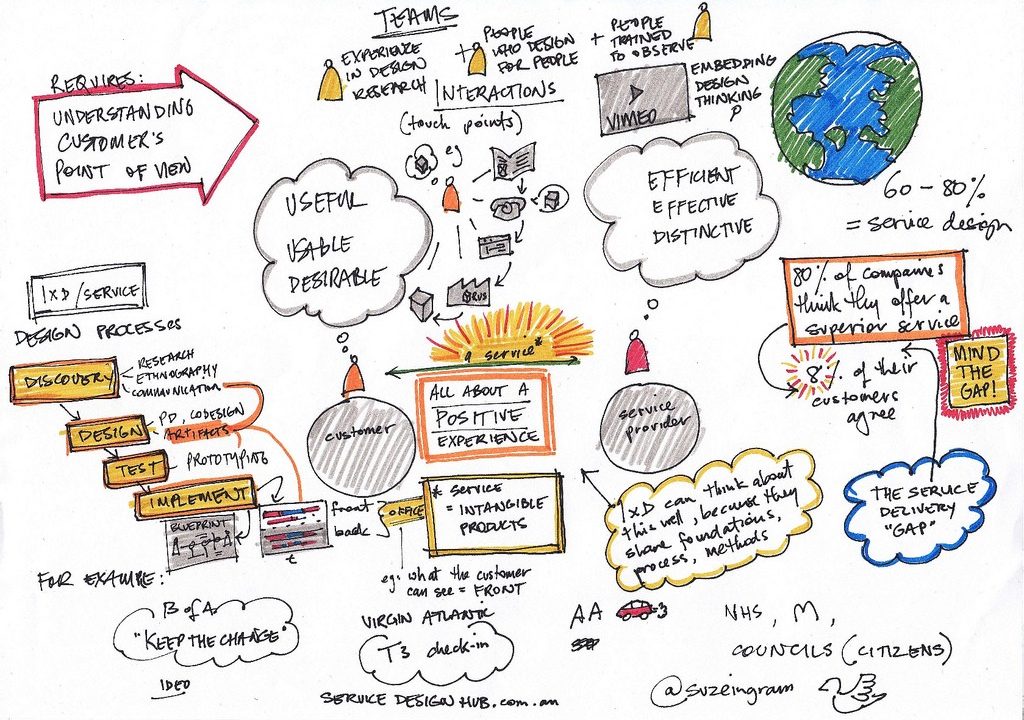 TEAMS
EXPERIENCE
IN DESIGN
RESEARCH
+ PEOPLE
WHO DESIGN
FOR PEOPLE
+ PEOPLE
TRAINED
TO OBSERVE
REQUIRES:
UNDERSTANDING
CUSTOMER'S
POINT OF VIEW
INTERACTIONS
(touch points)
eg
VIMEO
EMBEDDING
DESIGN
THINKING
USEFUL
USABLE
DESIRABLE
EFFICIENT
EFFECTIVE
DISTINCTIVE
60-80%
= service design
80% of companies
think they offer a
superior service
8% of their
customers
agree
MIND
THE
GAP!
IXD/SERVICE
DESIGN PROCESSES
DISCOVERY
RESEARCH
ETHNOGRAPHY
COMMUNICATION
DESIGN
PD, CODESIGN
ARTIFACTS
TEST
PROTOTYPING
IMPLEMENT
BLUEPRINT
t
a service*
customer
ALL ABOUT A
POSITIVE
EXPERIENCE
service
provider
front
back
OFFICE
* SERVICE
= INTANGIBLE
PRODUCTS
eg: what the customer
can see = FRONT
IXD can think about
this well, because they
share foundations,
process, methods
THE SERVICE
DELIVERY
"GAP"
FOR EXAMPLE:
B of A
"KEEP THE CHANGE"
IDEO
VIRGIN ATLANTIC
T3 check-in
AA
NHS, M,
COUNCILS (CITIZENS)
SERVICE DESIGN HUB.com.au
@suzeingram